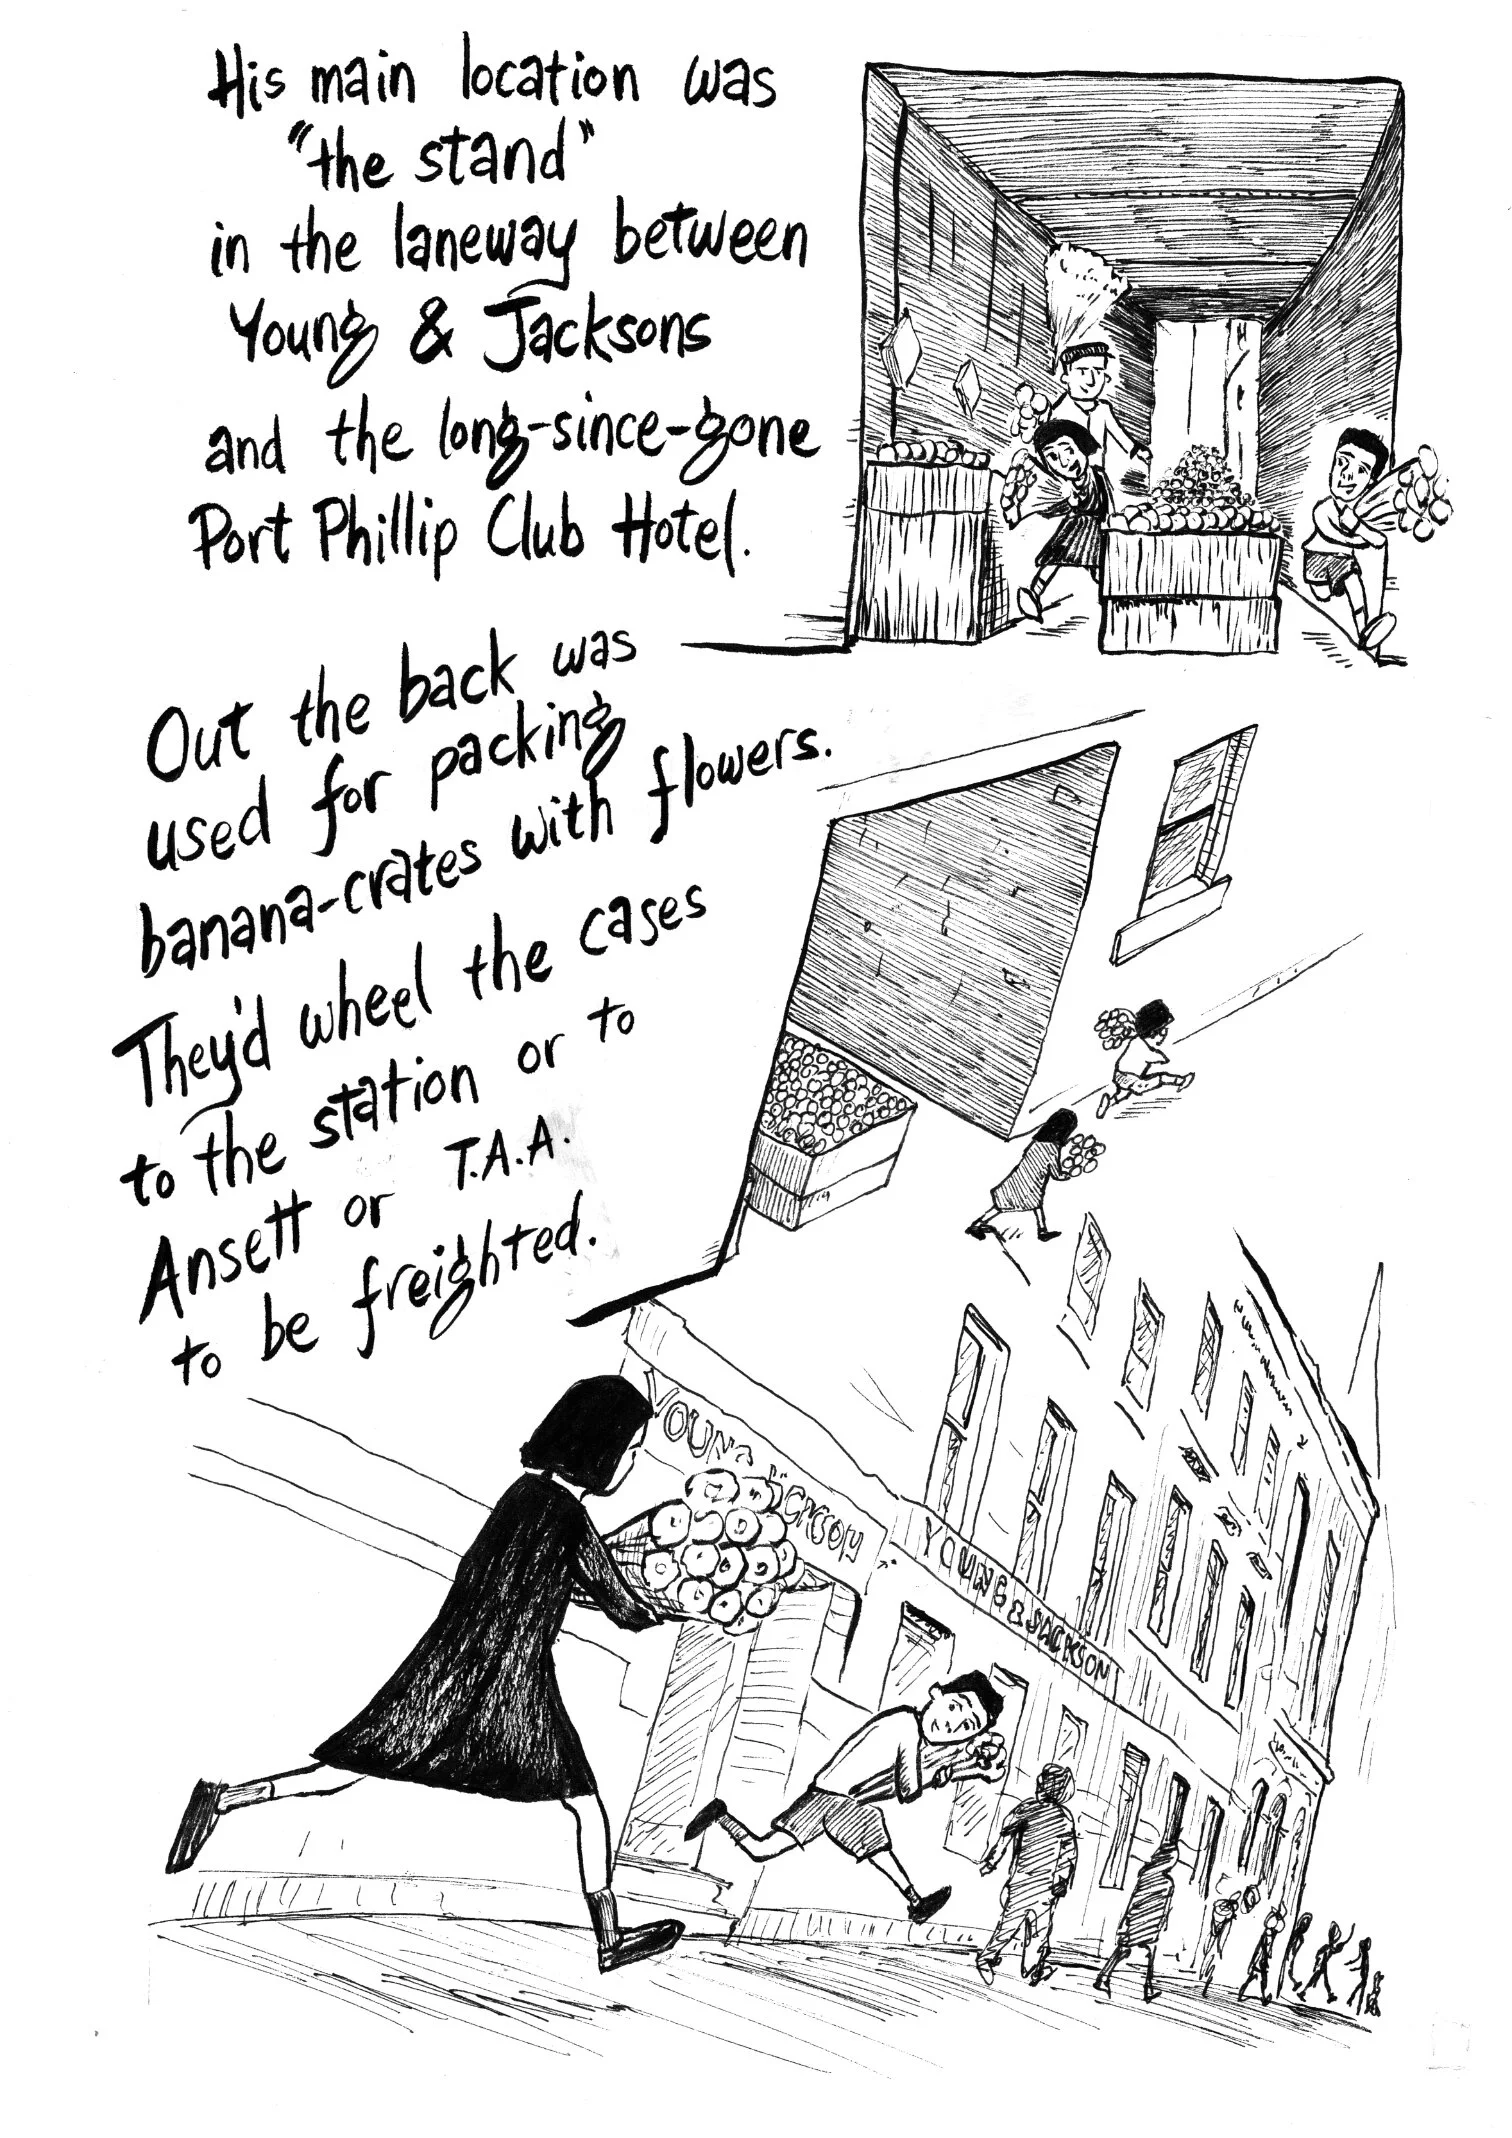 His main location was
"the stand"
in the laneway between
Young & Jacksons
and the long-since-gone
Port Phillip Club Hotel.
Out the back was
used for packing
banana-crates with flowers.
They'd wheel the cases
to the station or to
Ansett or T.A.A.
to be freighted.
YOUNG & JACKSON
YOUNG & JACKSON